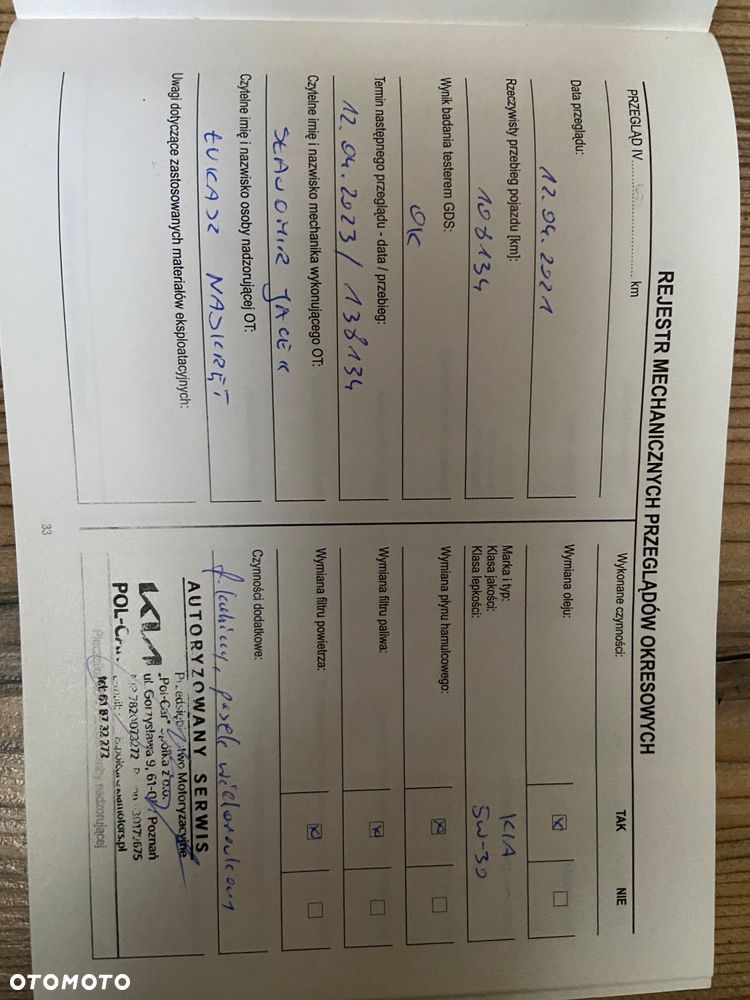 REJESTR MECHANICZNYCH PRZEGLĄDÓW OKRESOWYCH
PRZEGLĄD IV.............................. km
Data przeglądu:
12.04.2021
Rzeczywisty przebieg pojazdu [km]:
108134
Wynik badania testerem GDS:
OK
Termin następnego przeglądu - data / przebieg:
12.04.2023 / 138134
Czytelne imię i nazwisko mechanika wykonującego OT:
SŁAWOMIR JACEK
Czytelne imię i nazwisko osoby nadzorującej OT:
ŁUKASZ
Uwagi dotyczące zastosowanych materiałów eksploatacyjnych:
Wykonane czynności: TAK NIE
Wymiana oleju:
Marka i typ: KIA
Klasa jakości: 5W-30
Klasa lepkości:
Wymiana płynu hamulcowego:
Wymiana filtru paliwa:
Wymiana filtru powietrza:
Czynności dodatkowe:
f. kabiny, pasek
AUTORYZOWANY SERWIS
Motoryzacyjne
"Pol-Car" Spółka z o.o.
KIA ul. Gorzysława 9, Poznań
7820073272
POL-Car
tel. 61 87 32 273
nadzorującej
33
OTOMOTO